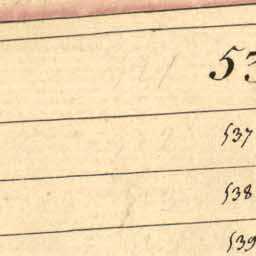 53
537
538
539